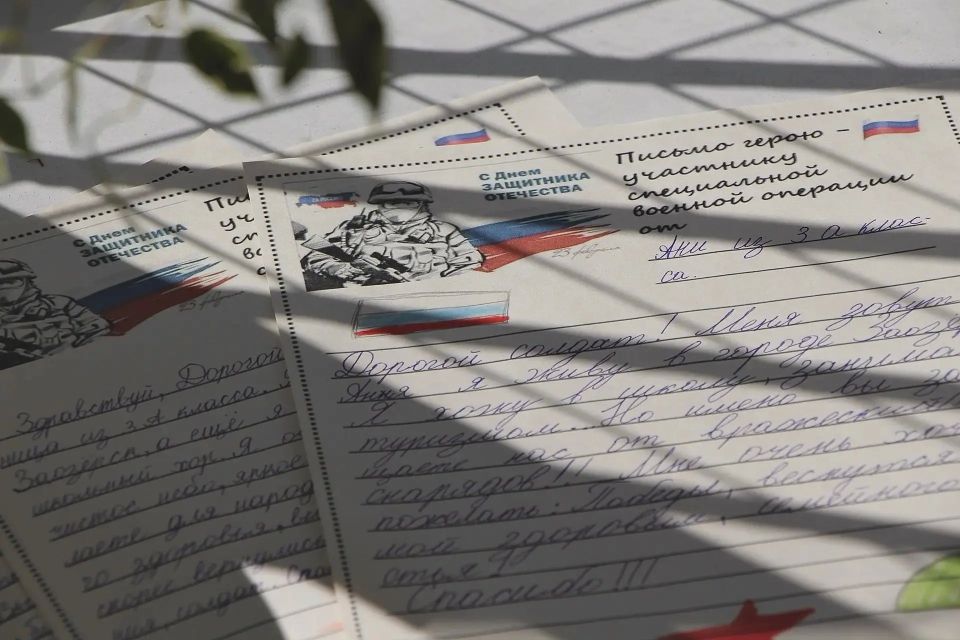 С Днем
ЗАЩИТНИКА
ОТЕЧЕСТВА
23 февраля
Письмо герою –
участнику
специальной
военной операции
от
Ани из 3 а клас-
са.
Дорогой солдат! Меня зовут
Аня я живу в городе Заозёр
Я хожу в школу, занима
туризмом. Но имено вы за
щаете нас от вражеских
снарядов!! Мне очень хоч
пожелать: Победы, вернутся
мой здоровым, семейного
стья
Спасибо!!!
С Днем
ЗАЩИТНИКА
ОТЕЧЕСТВА
23 февраля
Пи
уч
сп
во
Здравствуй, Дорогой
ница из 3 А класса.
Заозёрск, а ещё я
школьный хор. Я
чистое небо, яркое
лаете для народ
го здоровья, вы
скорее вернулись
ния, солдат. Спа